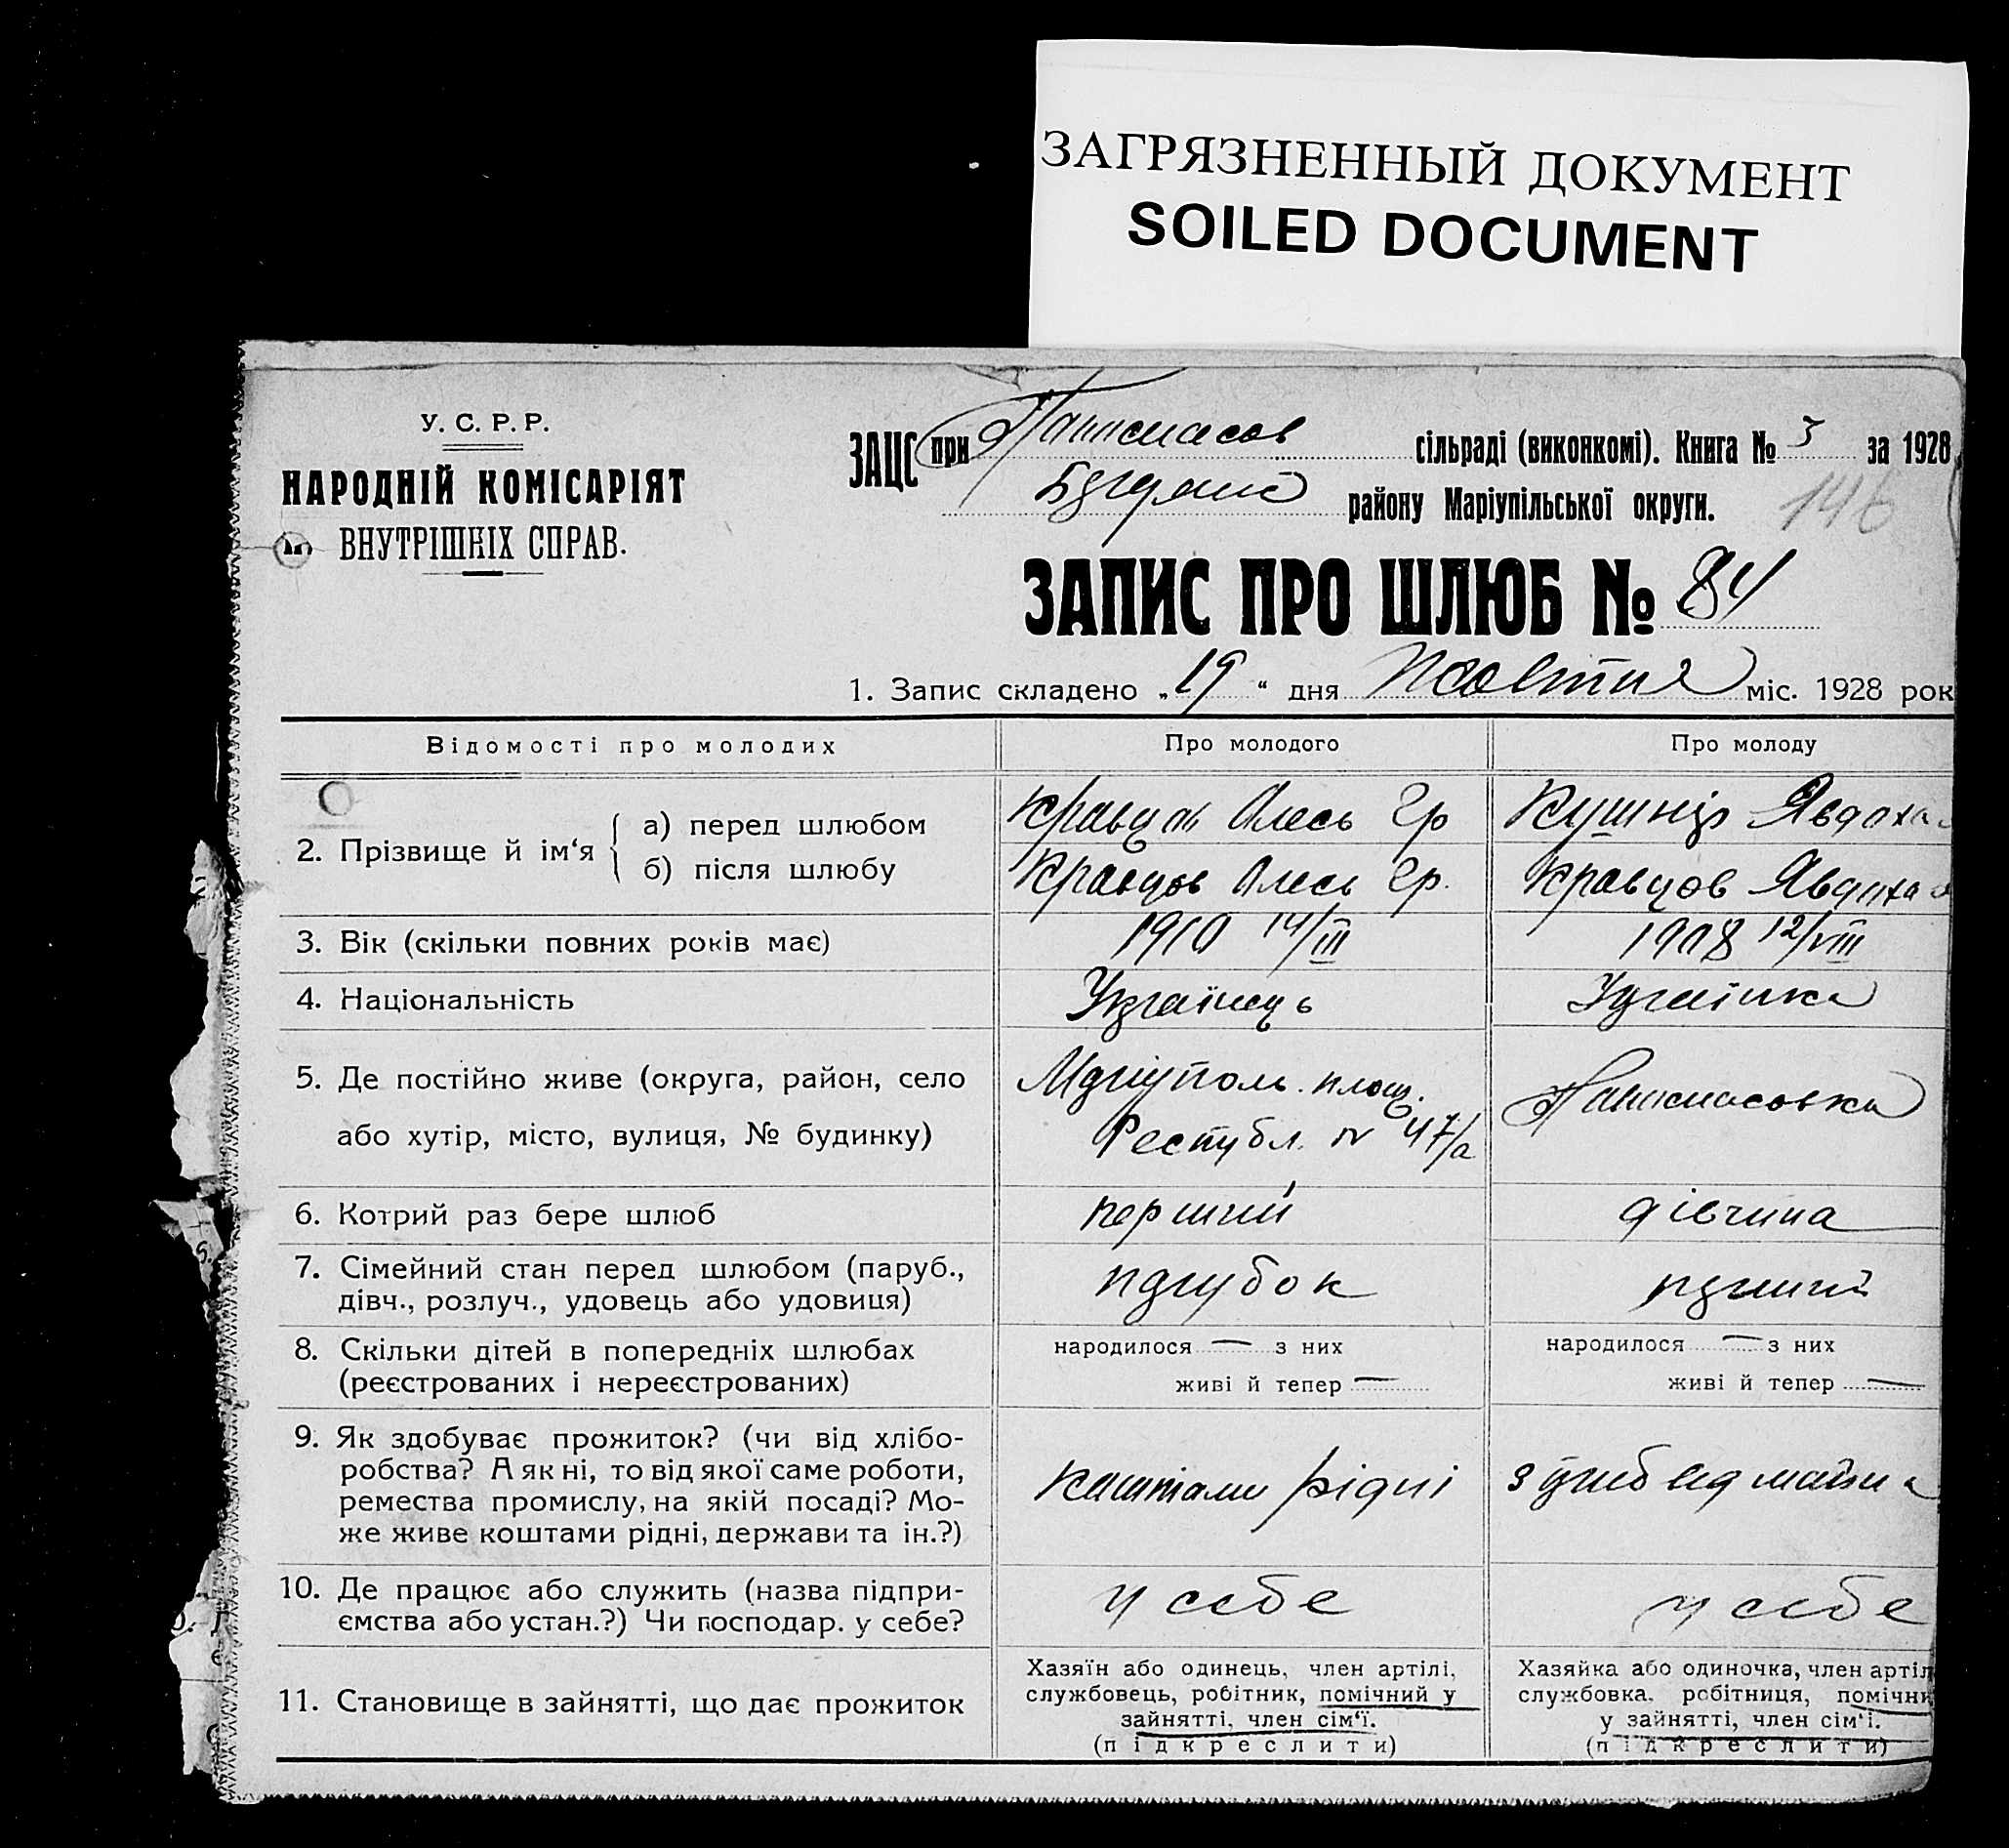 ЗАГРЯЗНЕННЫЙ ДОКУМЕНТ
SOILED DOCUMENT
У. С. Р. Р.
НАРОДНІЙ КОМІСАРІЯТ
ВНУТРІШНІХ СПРАВ.
ЗАЦС при сільраді (виконкомі). Книга № 3 за 1928
району Маріупільської округи.
146
ЗАПИС ПРО ШЛЮБ № 84
1. Запис складено „19“ дня Жовтня міс. 1928 рок
Відомості про молодих Про молодого Про молоду
2. Прізвище й ім‘я
а) перед шлюбом Кравцов Олесь Гр Кушнір Явдоха
б) після шлюбу Кравцов Олесь Гр. Кравцов Явдоха
3. Вік (скільки повних років має) 1910 14/III 1908 12/VIII
4. Національність Українець Українка
5. Де постійно живе (округа, район, село Маріуполь. площ.
або хутір, місто, вулиця, № будинку) Республ. № 47/а
6. Котрий раз бере шлюб перший дівчина
7. Сімейний стан перед шлюбом (паруб., дівч., розлуч., удовець або удовиця) парубок перший
8. Скільки дітей в попередніх шлюбах народилося — з них народилося — з них
(реєстрованих і нереєстрованих) живі й тепер — живі й тепер —
9. Як здобуває прожиток? (чи від хлібо-
робства? А як ні, то від якої саме роботи,
ремества промислу, на якій посаді? Мо- коштами рідні
же живе коштами рідні, держави та ін.?)
10. Де працює або служить (назва підпри- у себе у себе
ємства або устан.?) Чи господар. у себе?
11. Становище в зайнятті, що дає прожиток
Хазяїн або одинець, член артілі,
службовець, робітник, помічний у
зайнятті, член сім‘ї.
(підкреслити)
Хазяйка або одиночка, член артіл
службовка, робітниця, помічни
у зайнятті, член сім‘і.
(підкреслити)